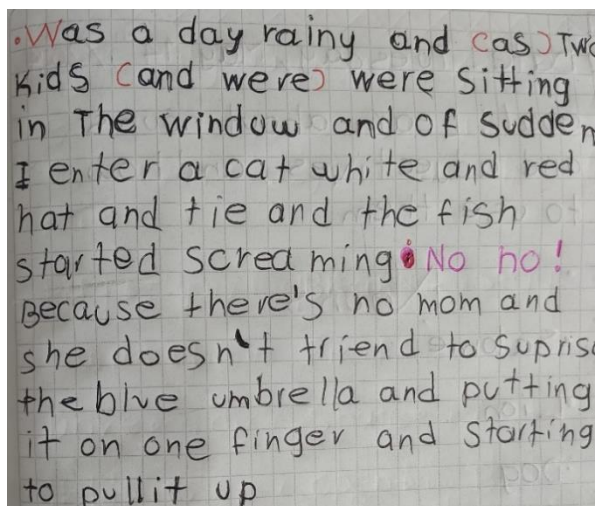 .Was a day rainy and (as) Two
kids (and were) were sitting
in The window and of sudden
I enter a cat white and red
hat and tie and the fish
started screaming: No no!
Because there's no mom and
she doesn't friend to supris
the blue umbrella and putting
it on one finger and starting
to pull it up